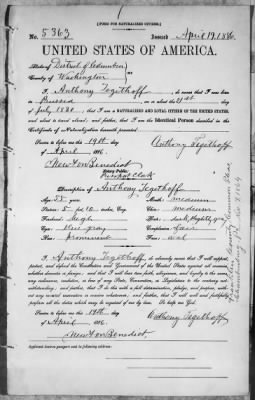 [FORM FOR NATURALIZED CITIZEN.]
No. 5363 Issued April 19, 1886
UNITED STATES OF AMERICA.
State of District of Columbia
County of Washington
I, Anthony Tegethoff, do swear that I was born
in Prussia, on or about the 21st day of
July, that I am a NATURALIZED AND LOYAL CITIZEN OF THE UNITED STATES,
and about to travel abroad; and further, that I am the Identical Person described in the
Certificate of Naturalization herewith presented.
Sworn to before me this 19th day Anthony Tegethoff
of April, 1886.
Newton Benedict
Notary Public.
Passport Clerk
Description of Anthony Tegethoff
Age: Mouth: medium
Stature: 5 ft. 10 inches, Eng. Chin: medium
Forehead: high Hair: dark, slightly gray
Eyes: blue gray Complexion: fair
Nose: prominent Face: oval
I, Anthony Tegethoff, do solemnly swear that I will support,
protect, and defend the Constitution and Government of the United States against all enemies,
whether domestic or foreign; and that I will bear true faith, allegiance, and loyalty to the same,
any ordinance, resolution, or law of any State, Convention, or Legislature to the contrary not-
withstanding; and further, that I do this with a full determination, pledge, and purpose, with-
out any mental reservation or evasion whatsoever; and further, that I will well and faithfully
perform all the duties which may be required of me by law. So help me God.
Sworn to before me this 19th day Anthony Tegethoff
of April, 1886.
Newton Benedict,
Applicant desires passport sent to following address:
Franklin County Common Pleas